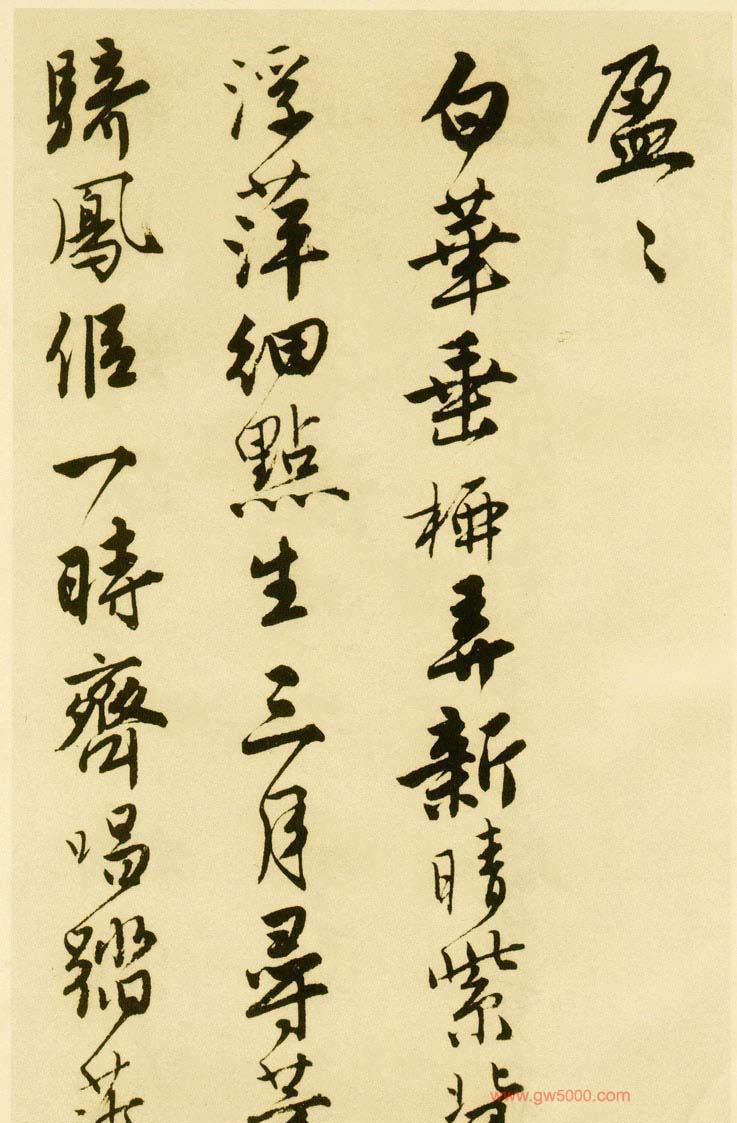 盈〻
白華垂柟弄新晴紫背
浮萍細點生三月尋芳
騎鳳侶一時齊唱蹋莎
www.gw5000.com